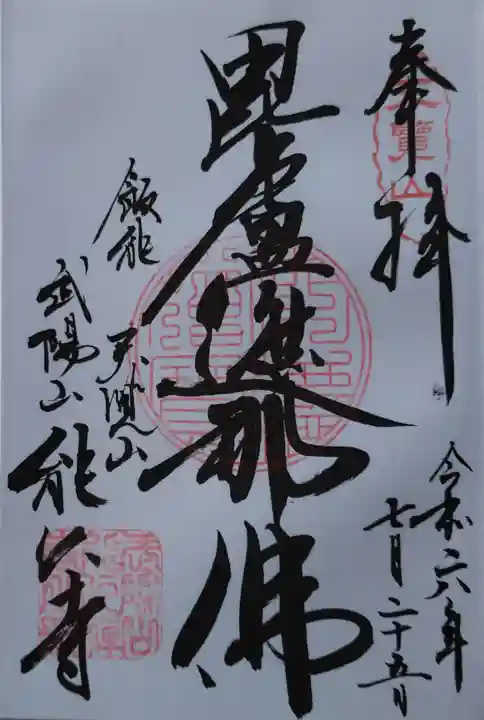 奉拝
天覽山
令和六年
七月二十五日
毘盧遮那佛
飯能
天覧山
武陽山能仁寺